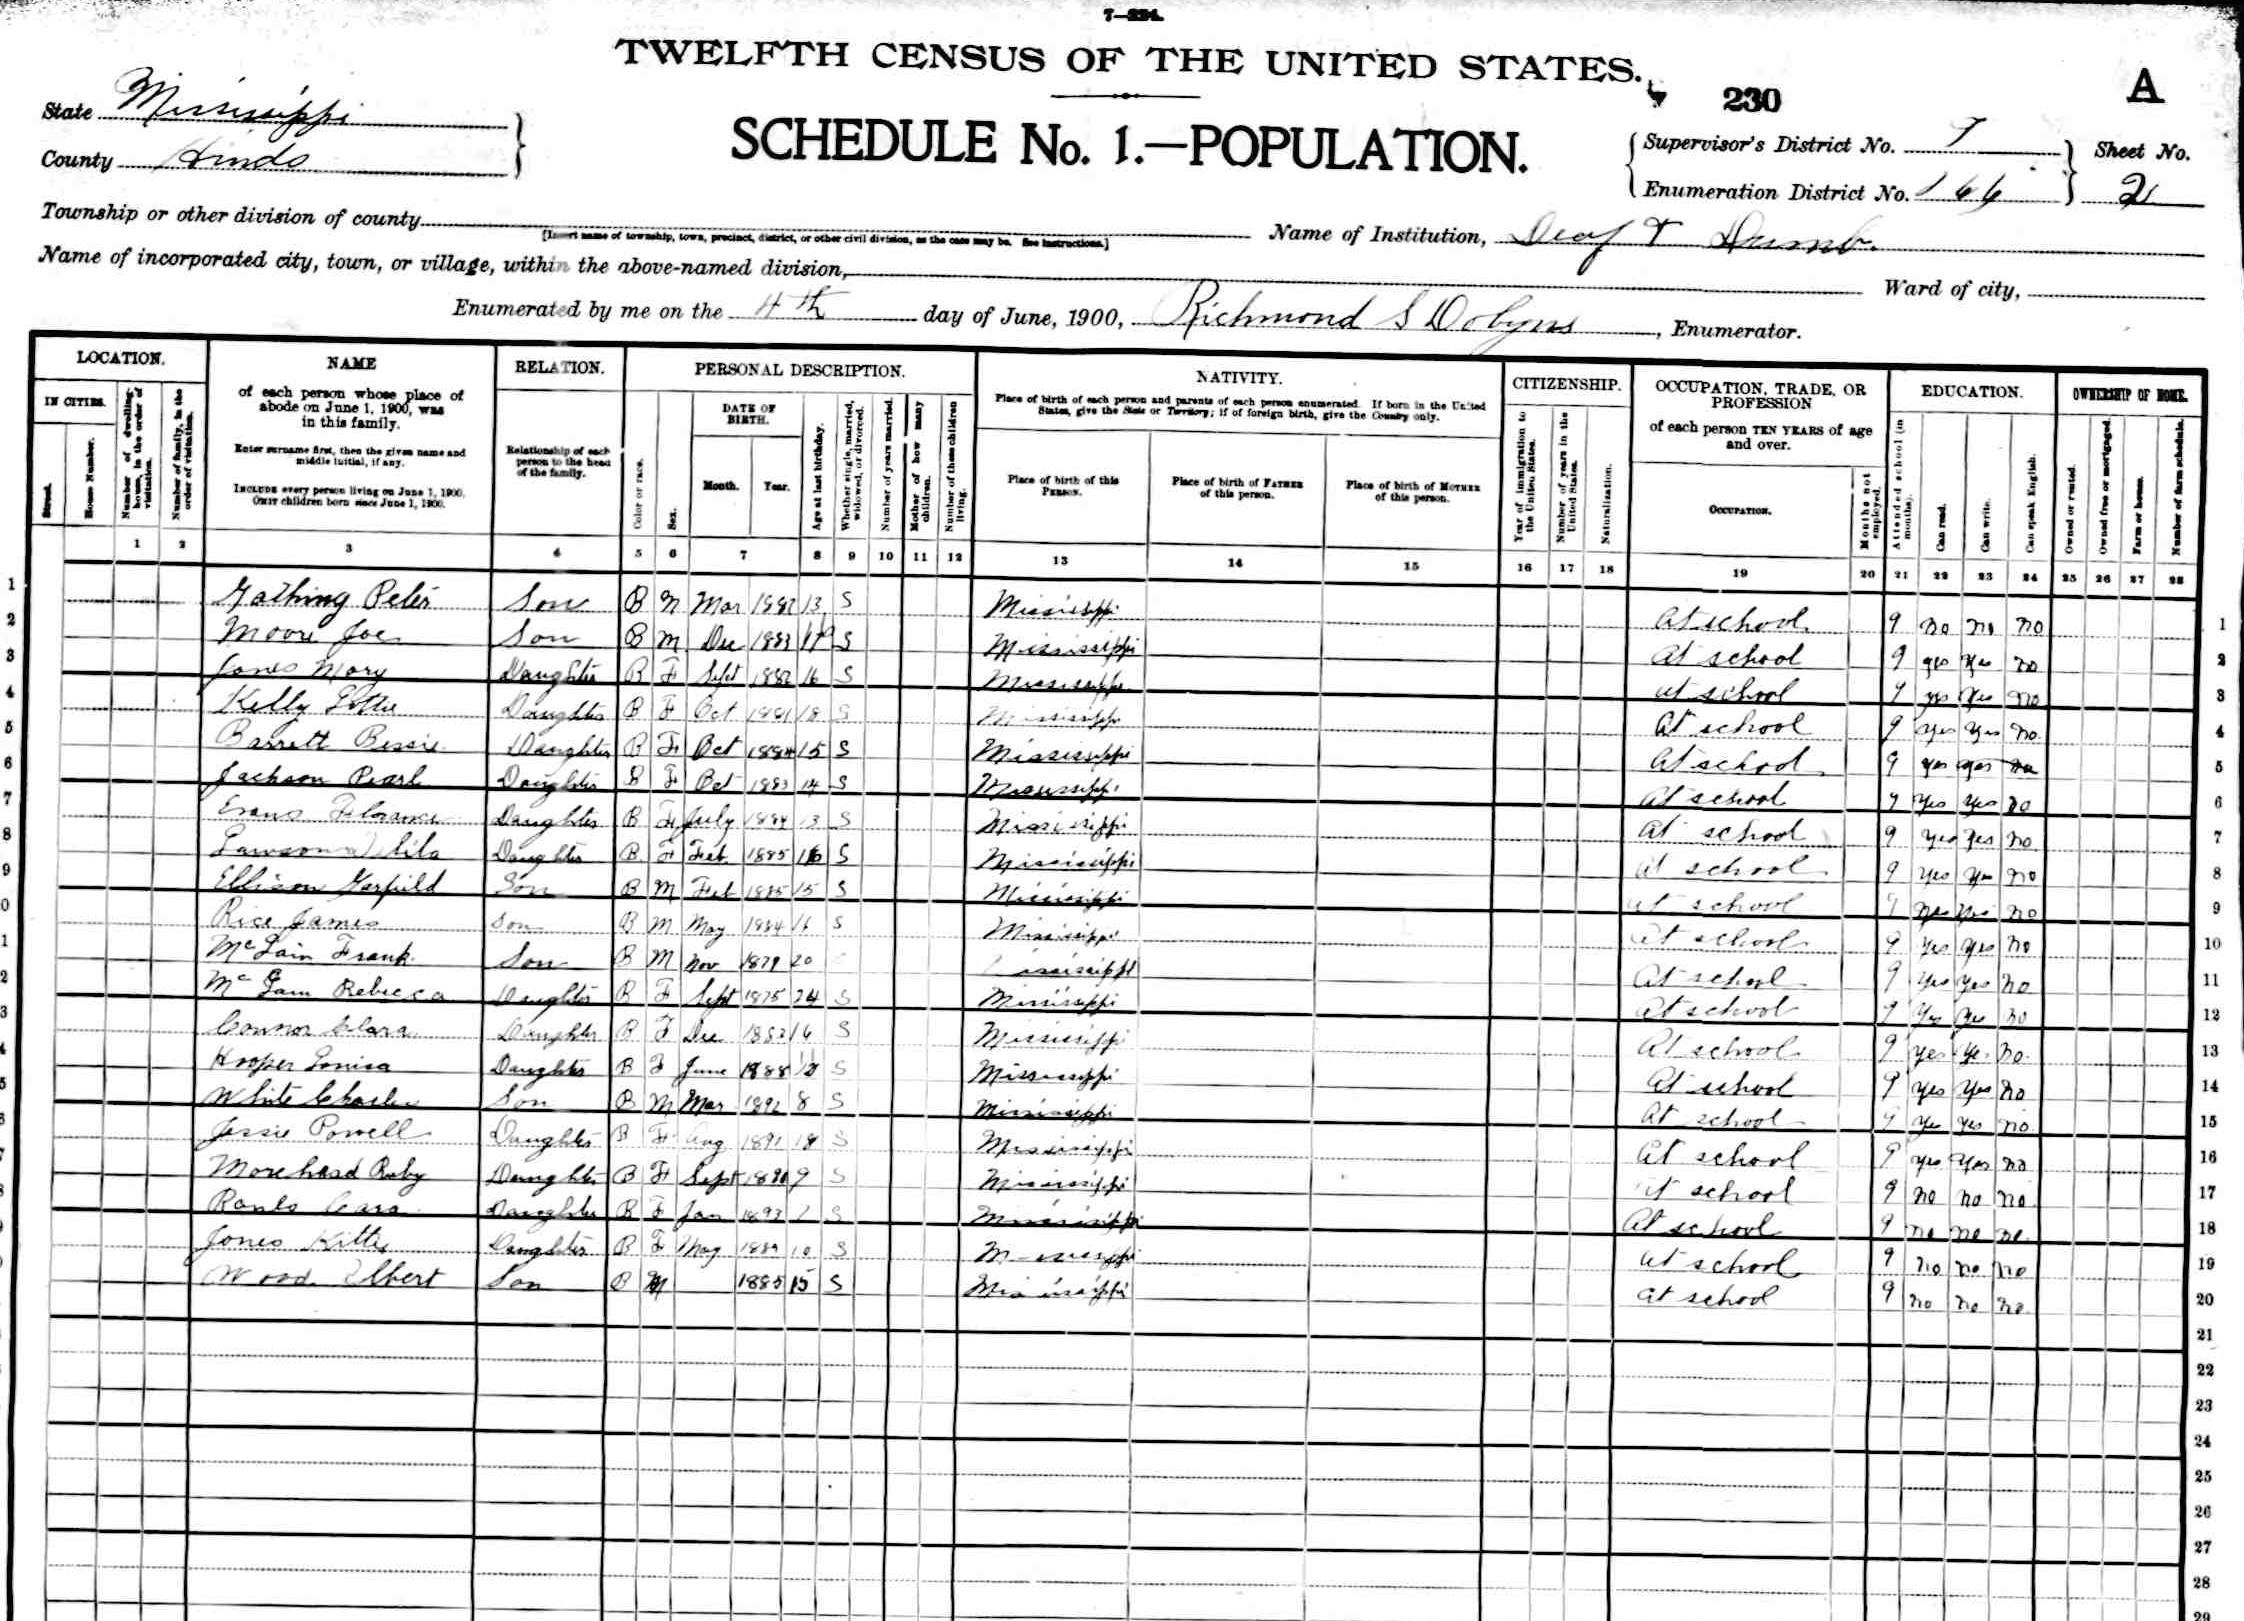 7—224.
TWELFTH CENSUS OF THE UNITED STATES.
230
A
State Mississippi
County Hinds
SCHEDULE No. 1.—POPULATION.
Supervisor's District No. 7
Enumeration District No. 166
Sheet No.
2
Township or other division of county
[Insert name of township, town, precinct, district, or other civil division, as the case may be. See instructions.]
Name of Institution, Deaf & Dumb.
Name of incorporated city, town, or village, within the above-named division,
Ward of city,
Enumerated by me on the 4th day of June, 1900, Richmond S Dobyns, Enumerator.
LOCATION. NAME RELATION. PERSONAL DESCRIPTION. NATIVITY. CITIZENSHIP. OCCUPATION, TRADE, OR PROFESSION EDUCATION. OWNERSHIP OF HOME.
IN CITIES.
Street.
House Number.
Number of dwelling house, in the order of visitation.
Number of family, in the order of visitation.
of each person whose place of abode on June 1, 1900, was in this family.
Enter surname first, then the given name and middle initial, if any.
INCLUDE every person living on June 1, 1900.
OMIT children born since June 1, 1900.
Relationship of each person to the head of the family.
Color or race.
Sex.
DATE OF BIRTH.
Month. Year.
Age at last birthday.
Whether single, married, widowed, or divorced.
Number of years married.
Mother of how many children.
Number of these children living.
Place of birth of each person and parents of each person enumerated. If born in the United States, give the State or Territory; if of foreign birth, give the Country only.
Place of birth of this PERSON.
Place of birth of FATHER of this person.
Place of birth of MOTHER of this person.
Year of immigration to the United States.
Number of years in the United States.
Naturalization.
of each person TEN YEARS of age and over.
OCCUPATION.
Months not employed.
Attended school (in months).
Can read.
Can write.
Can speak English.
Owned or rented.
Owned free or mortgaged.
Farm or house.
Number of farm schedule.
1 2 3 4 5 6 7 8 9 10 11 12 13 14 15 16 17 18 19 20 21 22 23 24 25 26 27 28
1 Peter Son B M Mar 13 S Mississippi At school 9 no no no 1
2 Moore Joe Son B M Dec 1883 S Mississippi At school 9 yes yes no 2
3 Jones Mary Daughter B F Sept 16 S Mississippi at school 9 yes yes no 3
4 Kelly Lottie Daughter B F Oct 1881 18 S Mississippi At school 9 yes yes no 4
5 Barrett Bessie Daughter B F Oct 1884 15 S Mississippi At school 9 yes yes no 5
6 Jackson Pearl Daughter B F Oct 1883 14 S Mississippi At school 9 yes yes no 6
7 Evans Florance Daughter B F July 1884 13 S Mississippi At school 9 yes yes no 7
8 Lawson Daughter B F Feb 1885 S Mississippi At school 9 yes yes no 8
9 Ellison Garfield Son B M Feb 1885 15 S Mississippi at school 9 yes yes no 9
0 Rice James Son B M May 1884 16 S Mississippi At school 9 yes yes no 10
1 McLain Frank Son B M Nov 1879 20 Mississippi At school 9 yes yes no 11
2 McLain Rebecca Daughter B F Sept 1875 24 S Mississippi At school 9 yes yes no 12
3 Connor Clara Daughter B F Dec 16 S Mississippi At school 9 yes yes no 13
4 Hooper Louisa Daughter B F June 1888 12 S Mississippi At school 9 yes yes no 14
5 White Charlie Son B M Mar 1892 8 S Mississippi At school 9 yes yes no 15
6 Jessie Powell Daughter B F Aug 1891 S Mississippi At school 9 yes yes no 16
7 Morehead Ruby Daughter B F Sept 1890 9 S Mississippi At school 9 no no no 17
8 Daughter B F Jan 1893 S Mississippi At school 9 no no no 18
9 Jones Kittie Daughter B F May 1889 10 S Mississippi at school 9 no no no 19
Wood Elbert Son B M 1885 15 S Mississippi at school 9 no no no 20
21
22
23
24
25
26
27
28
29